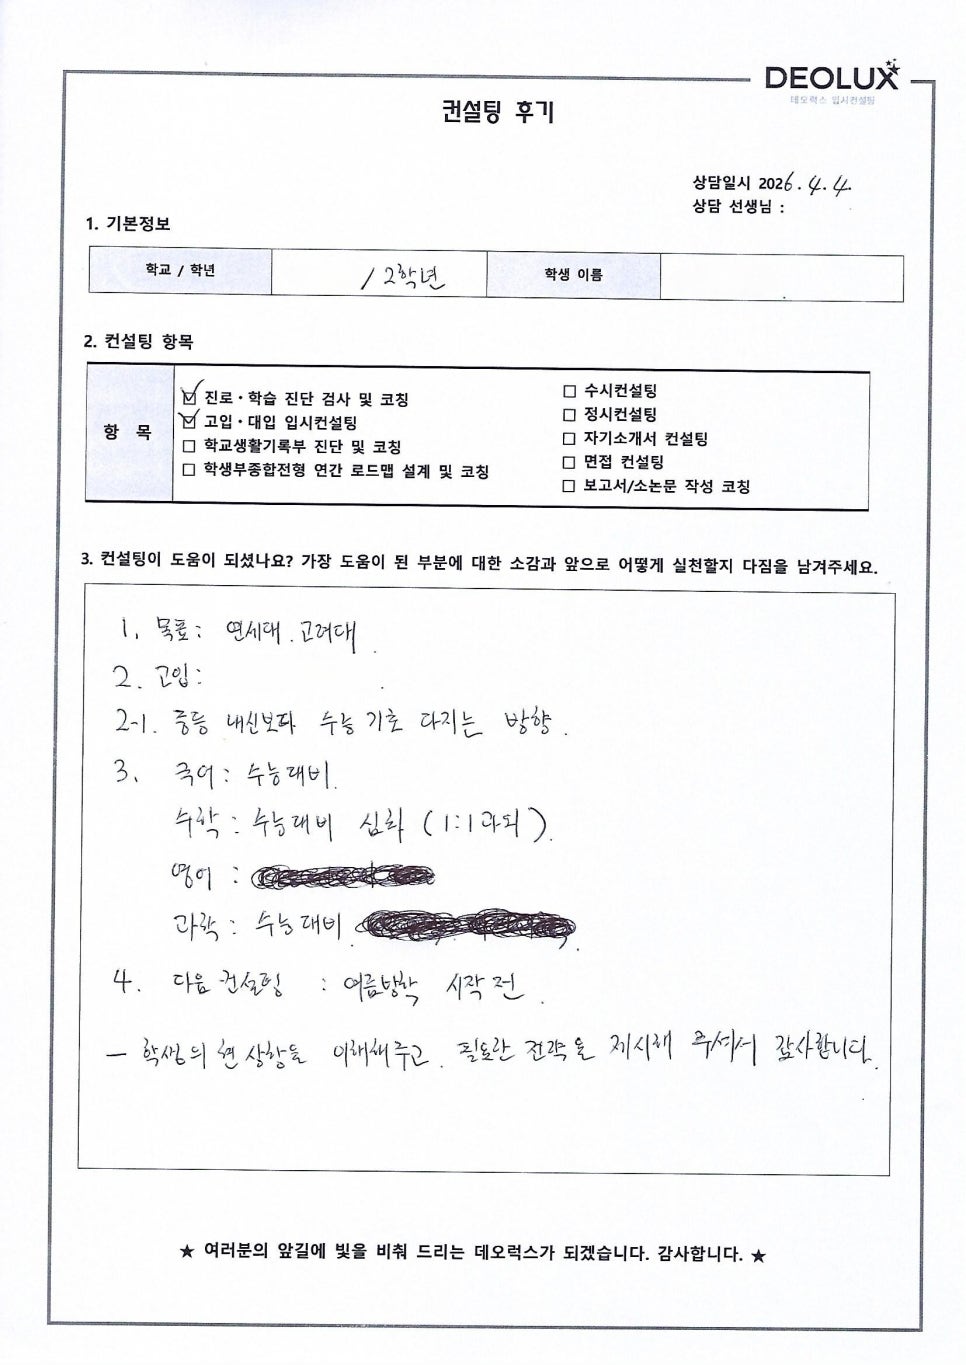 DEOLUX
데오럭스 입시컨설팅
컨설팅 후기
상담일시 2026.4.4.
상담 선생님 :
1. 기본정보
학교 / 학년 / 2학년 학생 이름
2. 컨설팅 항목
항 목
☑ 진로·학습 진단 검사 및 코칭
☑ 고입·대입 입시컨설팅
□ 학교생활기록부 진단 및 코칭
□ 학생부종합전형 연간 로드맵 설계 및 코칭
□ 수시컨설팅
□ 정시컨설팅
□ 자기소개서 컨설팅
□ 면접 컨설팅
□ 보고서/소논문 작성 코칭
3. 컨설팅이 도움이 되셨나요? 가장 도움이 된 부분에 대한 소감과 앞으로 어떻게 실천할지 다짐을 남겨주세요.
1. 목표: 연세대. 고려대.
2. 고입:
2-1. 중등 내신보다 수능 기초 다지는 방향.
3. 국어: 수능대비.
수학: 수능대비 심화 (1:1과외).
영어:
과학: 수능대비.
4. 다음 컨설팅 : 여름방학 시작 전.
– 학생의 현 상황을 이해해주고. 필요한 전략을 제시해 주셔서 감사합니다.
★ 여러분의 앞길에 빛을 비춰 드리는 데오럭스가 되겠습니다. 감사합니다. ★